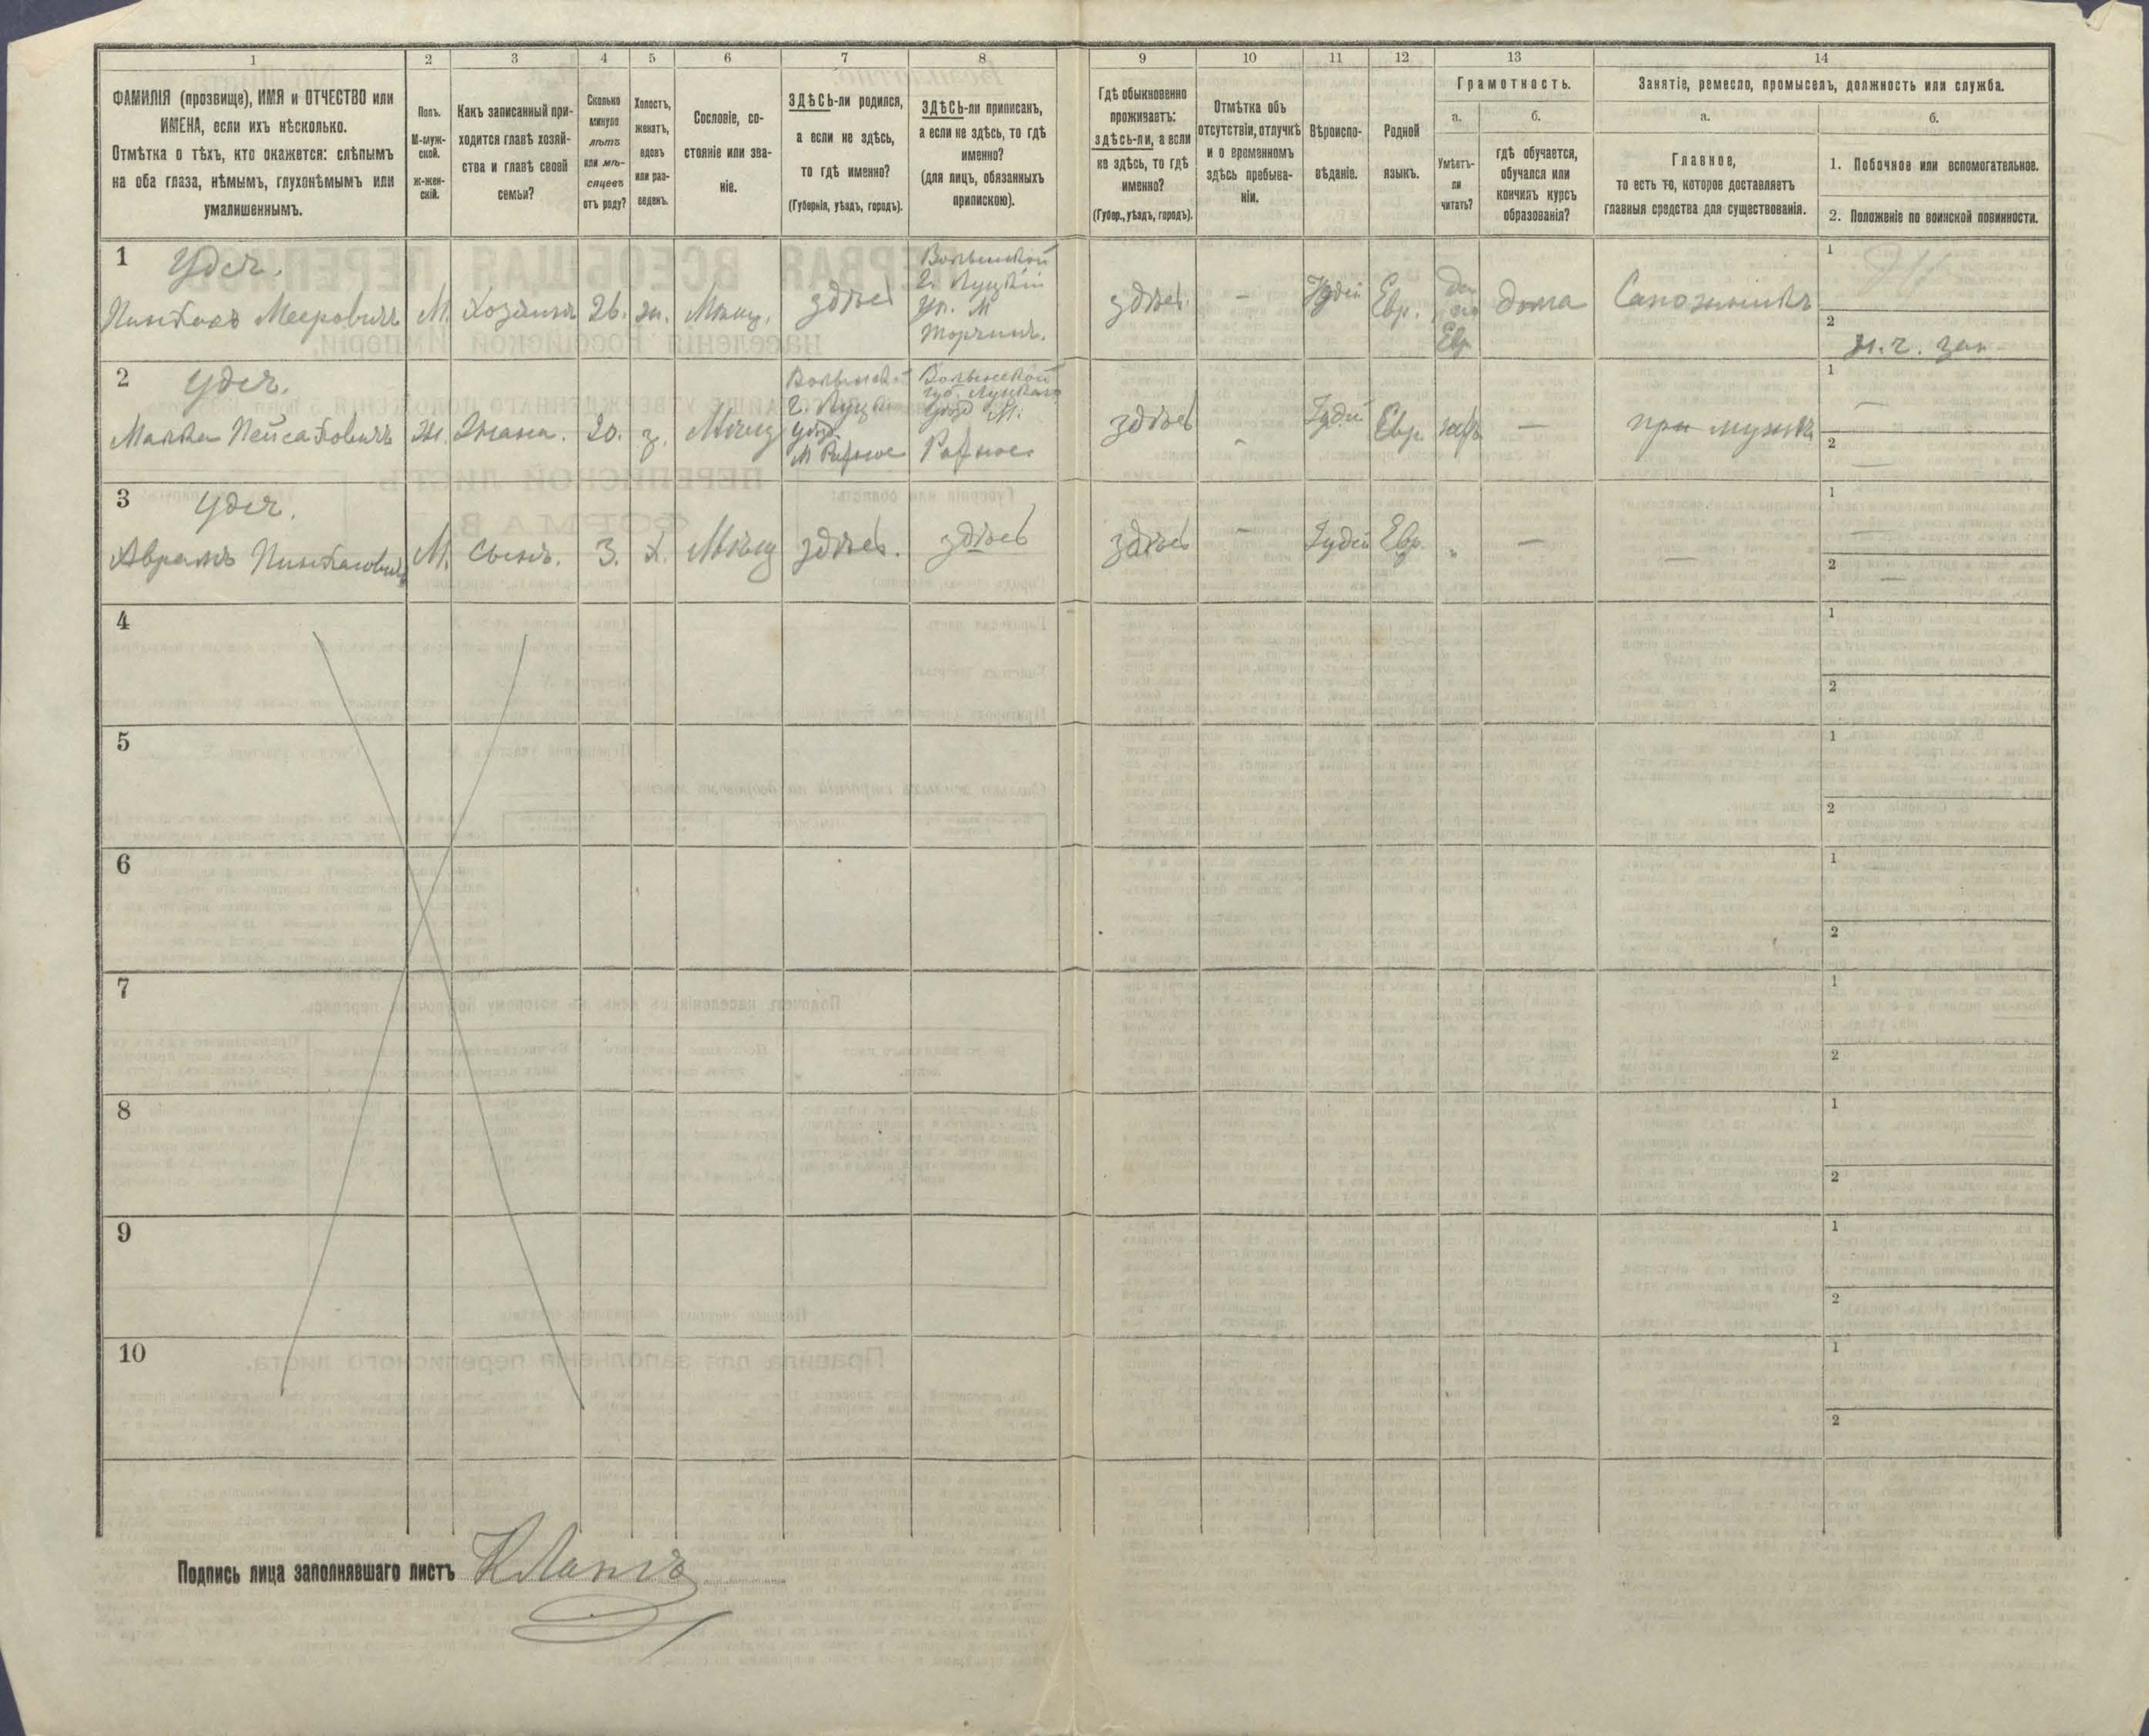 1
2
3
4
5
6
7
8
9
10
11
12
13
14
ФАМИЛІЯ (прозвище), ИМЯ и ОТЧЕСТВО или
ИМЕНА, если ихъ нѣсколько.
Отмѣтка о тѣхъ, кто окажется: слѣпымъ
на оба глаза, нѣмымъ, глухонѣмымъ или
умалишеннымъ.
Полъ.
М-муж-
ской.
ж-жен-
скій.
Какъ записанный при-
ходится главѣ хозяй-
ства и главѣ своей
семьи?
Сколько
минуло
лѣтъ
или мѣ-
сяцевъ
отъ роду?
Холостъ,
женатъ,
вдовъ
или раз-
веденъ.
Сословіе, со-
стояніе или зва-
ніе.
ЗДѢСЬ-ли родился,
а если не здѣсь,
то гдѣ именно?
(Губернія, уѣздъ, городъ).
ЗДѢСЬ-ли приписанъ,
а если не здѣсь, то гдѣ
именно?
(для лицъ, обязанныхъ
припискою).
Гдѣ обыкновенно
проживаетъ:
здѣсь-ли, а если
не здѣсь, то гдѣ
именно?
(Губер., уѣздъ, городъ).
Отмѣтка объ
отсутствіи, отлучкѣ
и о временномъ
здѣсь пребыва-
ніи.
Вѣроиспо-
вѣданіе.
Родной
языкъ.
Грамотность.
а.
Умѣетъ-
ли
читать?
б.
гдѣ обучается,
обучался или
кончилъ курсъ
образованія?
Занятіе, ремесло, промыселъ, должность или служба.
а.
Главное,
то есть то, которое доставляетъ
главныя средства для существованія.
б.
1. Побочное или вспомогательное.
2. Положеніе по воинской повинности.
1
Удер.
Пинхасъ Мееровичъ
М.
Хозяинъ
26.
ж.
Мѣщ.
здѣсь
Волынской
г. Луцкій
у. М
Торчинъ.
здѣсь
-
Іудей
Евр.
да
по
Евр
дома
Сапожникъ
1
2
2
Удер.
Малка Пейсаховичъ
Ж.
Жена.
20.
з.
Мѣщ
Волынск.
г. Луцкі
уѣзд.
М Рожное
Волынской
губ. Луцкаго
уѣзд М.
Рожное
здѣсь
-
Іудей
Евр
—
при мужѣ
1
—
2
—
3
Удер.
Аврамъ Пинхасовичъ
М.
Сынъ.
3.
х.
Мѣщ
здѣсь.
здѣсь
здѣсь
-
Іудей
Евр.
"
—
—
1
—
2
—
4
1
2
5
1
2
6
1
2
7
1
2
8
1
2
9
1
2
10
1
2
Подпись лица заполнявшаго листъ